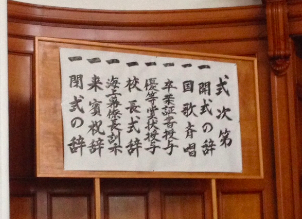 式次第
一 開式の辞
一 国歌斉唱
一 卒業証書授与
一 優等賞状授与
一 校長式辞
一 海上幕僚長訓示
一 来賓祝辞
一 閉式の辞